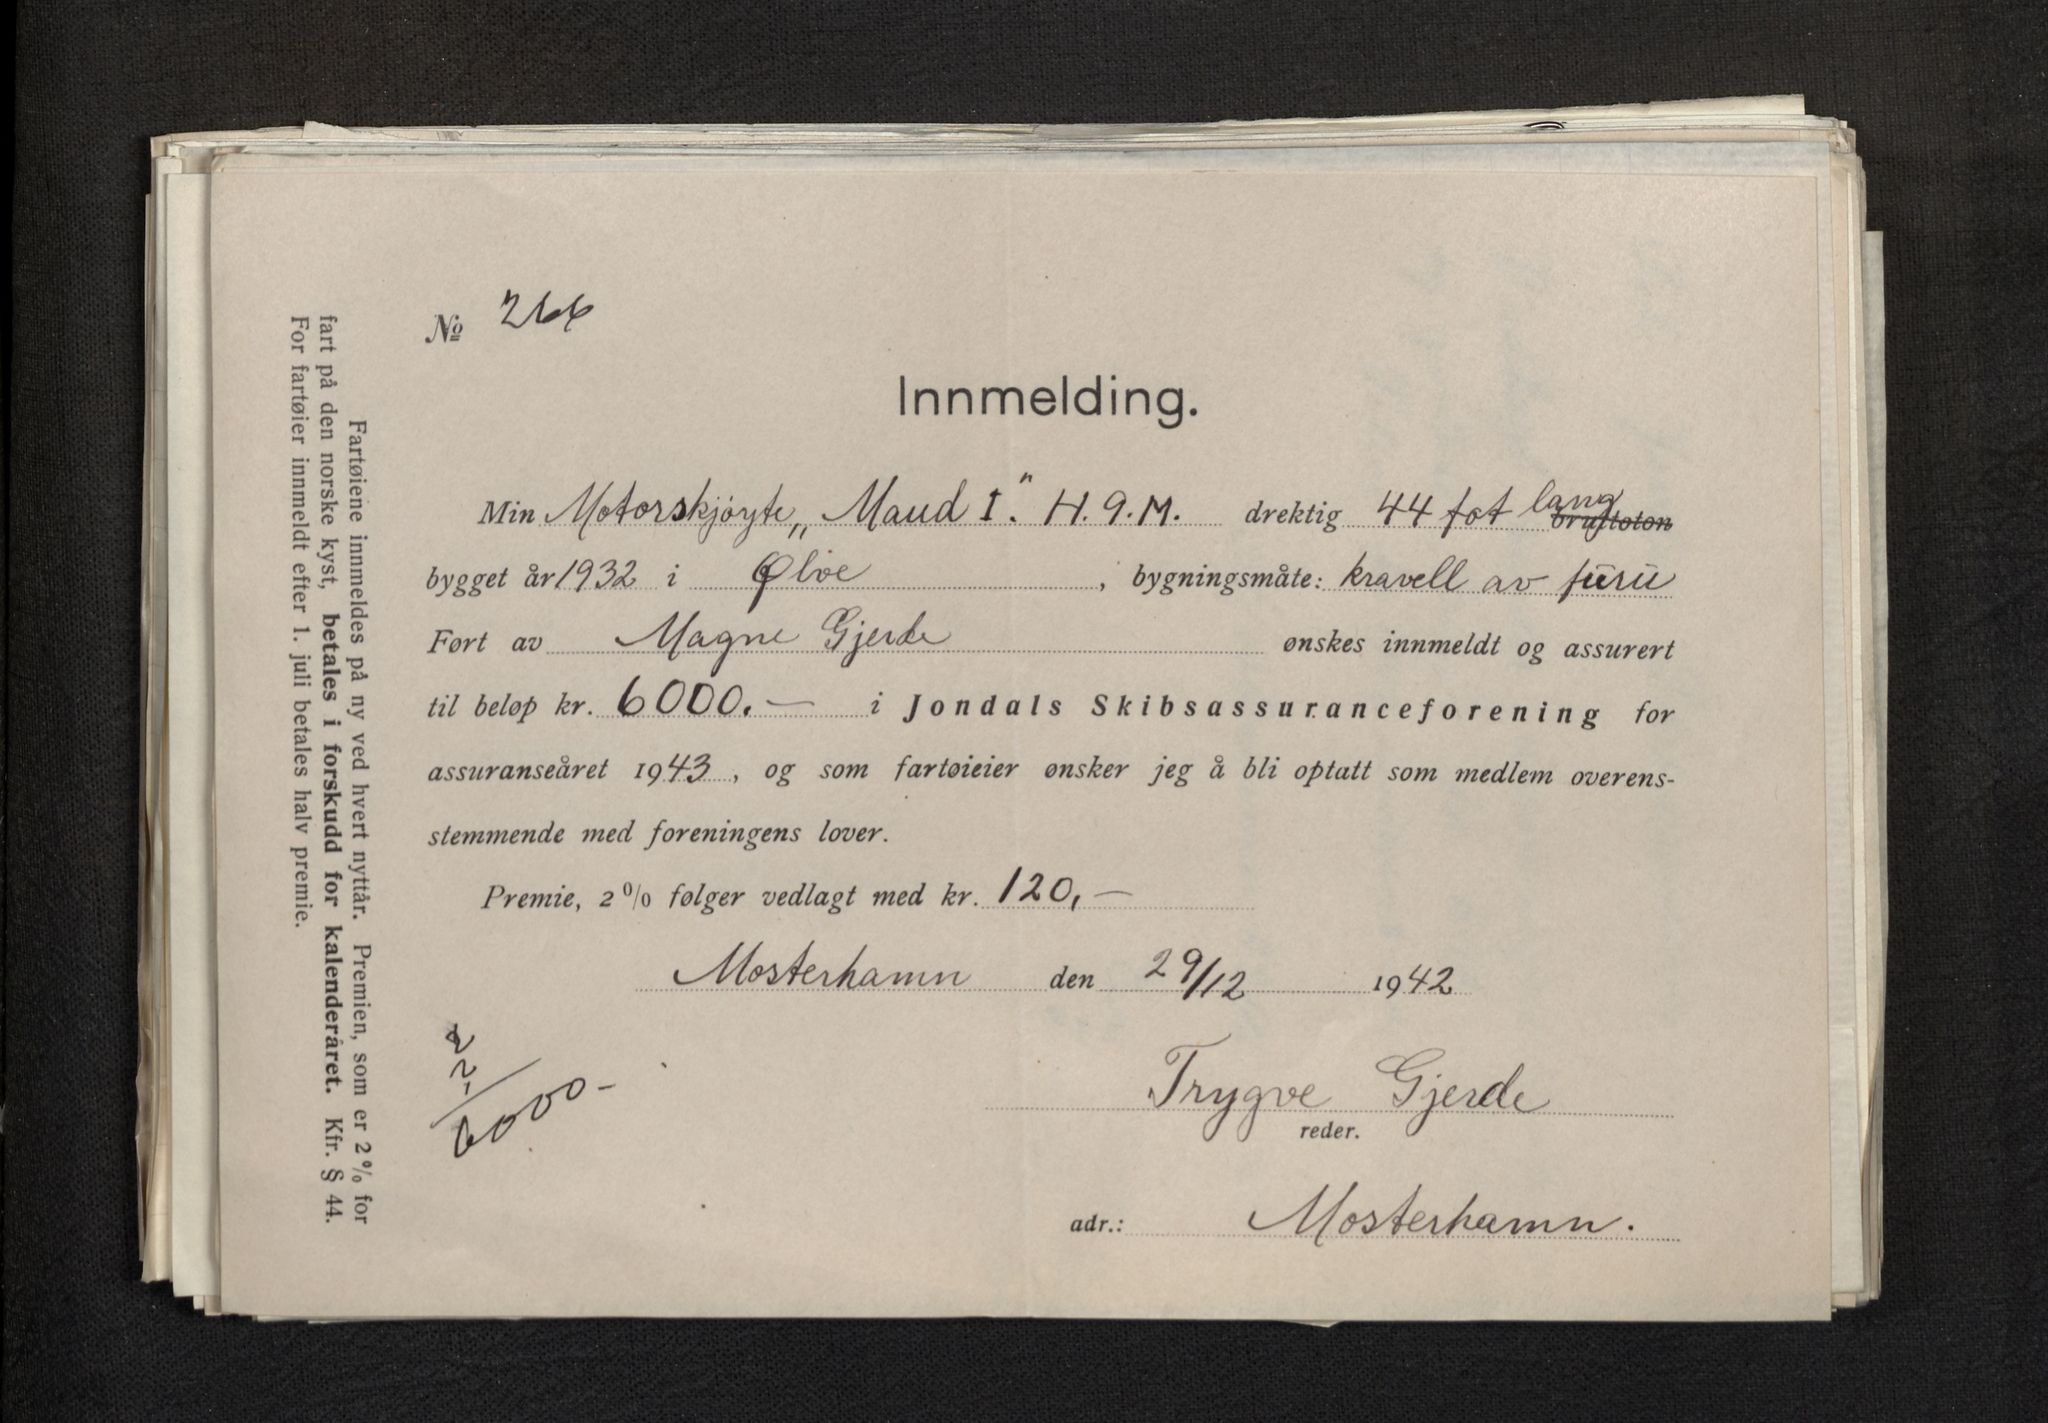 № 266
Innmelding.
Min Motorskjøyte „Maud I." H. 9. M. drektig 44 fot lang bruttoton
bygget år 1932 i Ølve, bygningsmåte: kravell av furu
Ført av Magne Gjerde ønskes innmeldt og assurert
til beløp kr. 6000.— i Jondals Skibsassuranceforening for
assuranseåret 1943, og som fartøieier ønsker jeg å bli optatt som medlem overens-
stemmende med foreningens lover.
Premie, 2% følger vedlagt med kr. 120,—
Mosterhamn den 29/12 1942
6000-
Trygve Gjerde
reder.
adr.: Mosterhamn.
Fartøiene innmeldes på ny ved hvert nyttår. Premien, som er 2% for
fart på den norske kyst, betales i forskudd for kalenderåret. Kfr. § 44.
For fartøier innmeldt efter 1. juli betales halv premie.